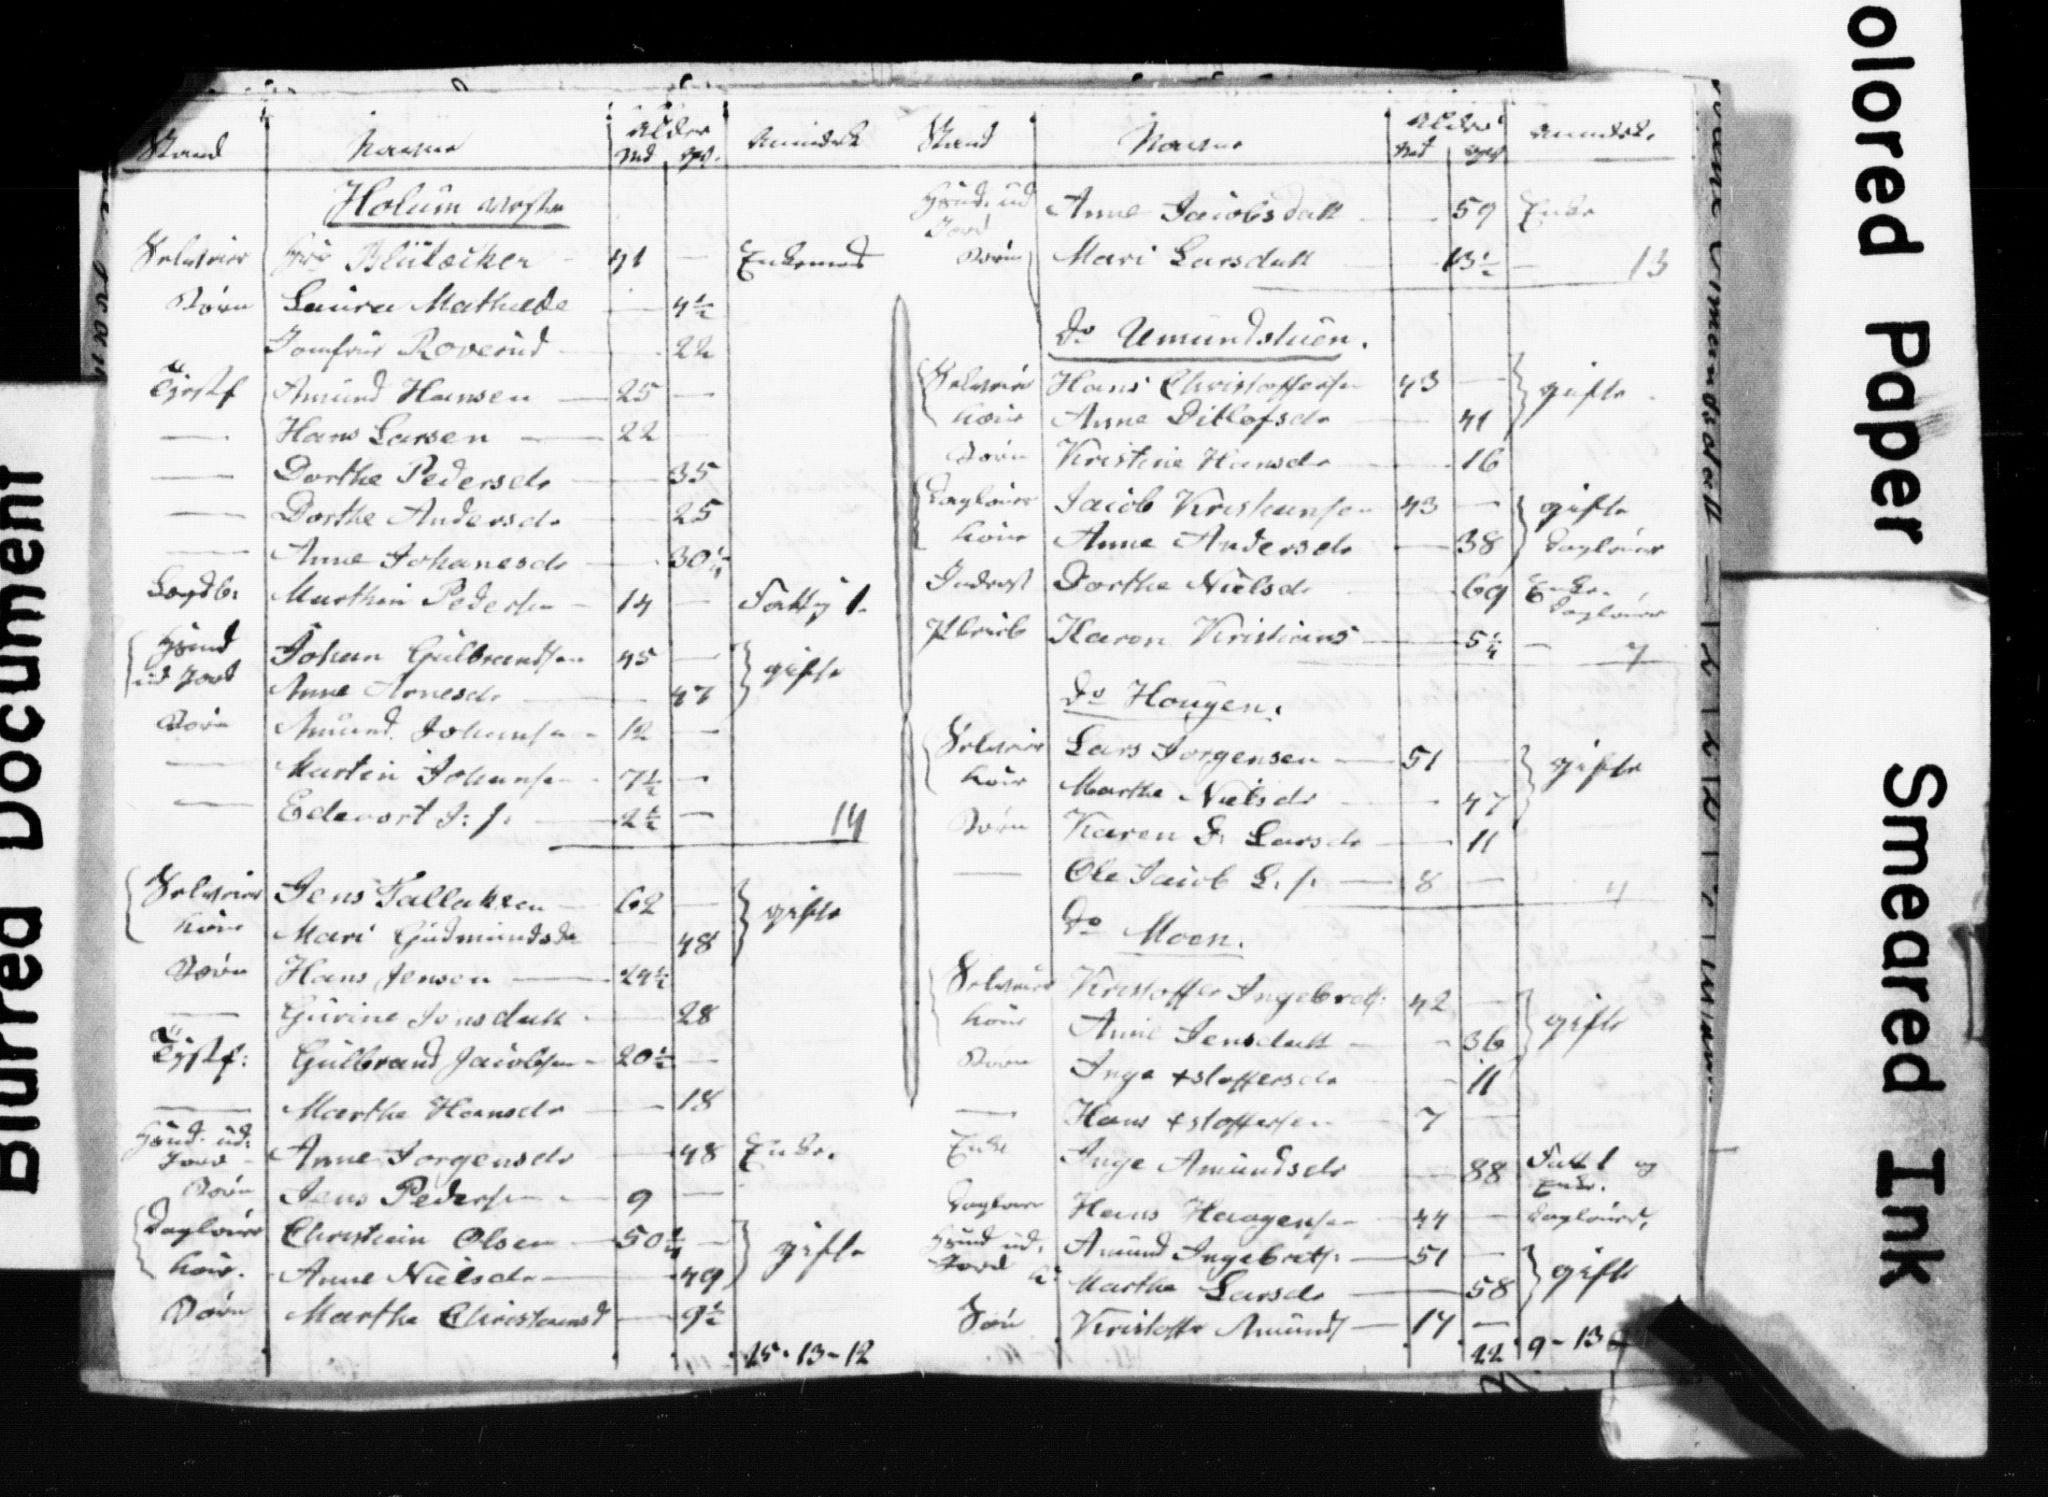 Stand Navne Alder Anmærk
Md qv.
Holum vestre
Selveier Hr Blütecher 41 — Enkemand
Børn Laura Mathilde — 4½
Jomfru Roverud — 22
Tjystf Amund Hansen — 25 —
— Hans Larsen — 22 —
— Dorthe Pedersdr — 35
— Dorthe Andersdr — 25
— Anne Johanesdr — 30¼
Lægdb: Marthin Pedersen — 14 — Fattig l.
Huusmd Johan Gulbrandsen 45 — gifte
ud Jord Anne Arnesdr — 47
Børn Amund Johansen — 12 —
— Martin Johansen — 7½ —
— Edevart J: s: — 2½ — 14
Selveier Jens Tallaksen — 62 — gifte
Kone Mari Gudmundsdr — 48
Børn Hans Jensen — 24½
— Gurine Jensdatt — 28
Tjystf: Gulbrand Jacobsen — 20½ —
— Marthe Hansdr — 18
Huusmd. ud: Jord — Anne Jorgensdr — 48 Enke.
Børn Jens Pedersen — 9 —
Dagleier Christian Olsen — 50¼ — gifte
Kone. Anne Nielsdr — 49
Børn Marthe Christiansd — 9½
25 · 13 – 12
Stand Navne Alder Anmærk.
Md qv
Huusmd. ud Jord Anne Jacobsdatt — 59 Enke
Børn Mari Larsdatt — 13½ — 13
Do Amundstuen.
Selveier Hans Christoffersen 43 — gifte
Kone Anne Ditlofsdr — 41
Børn Kristine Hansdr — 16
Dagleier Jacob Kristiansen 43 — gifte
Kone Anne Andersdr — 38 Dagleier
Inderst Dorthe Nielsdr — 69 Enke. Dagleier
Karen Kristians — 5¼ — 7
Do Hougen.
Selveier Lars Jorgensen — 51 — gifte
Kone Marthe Nielsdr — 47
Børn Karen D. Larsdr — 11
— Ole Jacob L. s. — 8 — 4
Do Moen.
Selveier Kristoffer Ingebrets: 42 — gifte
Kone Anne Jensdatt — 36
Børn Inge +stoffersdr — 11
— Hans +stoffersen — 7 —
Enke Inge Amundsdr — 88 Fatt l og Enke.
Dagleier Hans Haagensen — 44 — Dagleier.
Huusmd ud. Jord Amund Ingebrets: — 51 — gifte
K: Marthe Larsdr — 58
Søn Kristoffer Amunds — 14 —
22 9 – 13
Blurred Document
olored Paper
Smeared Ink